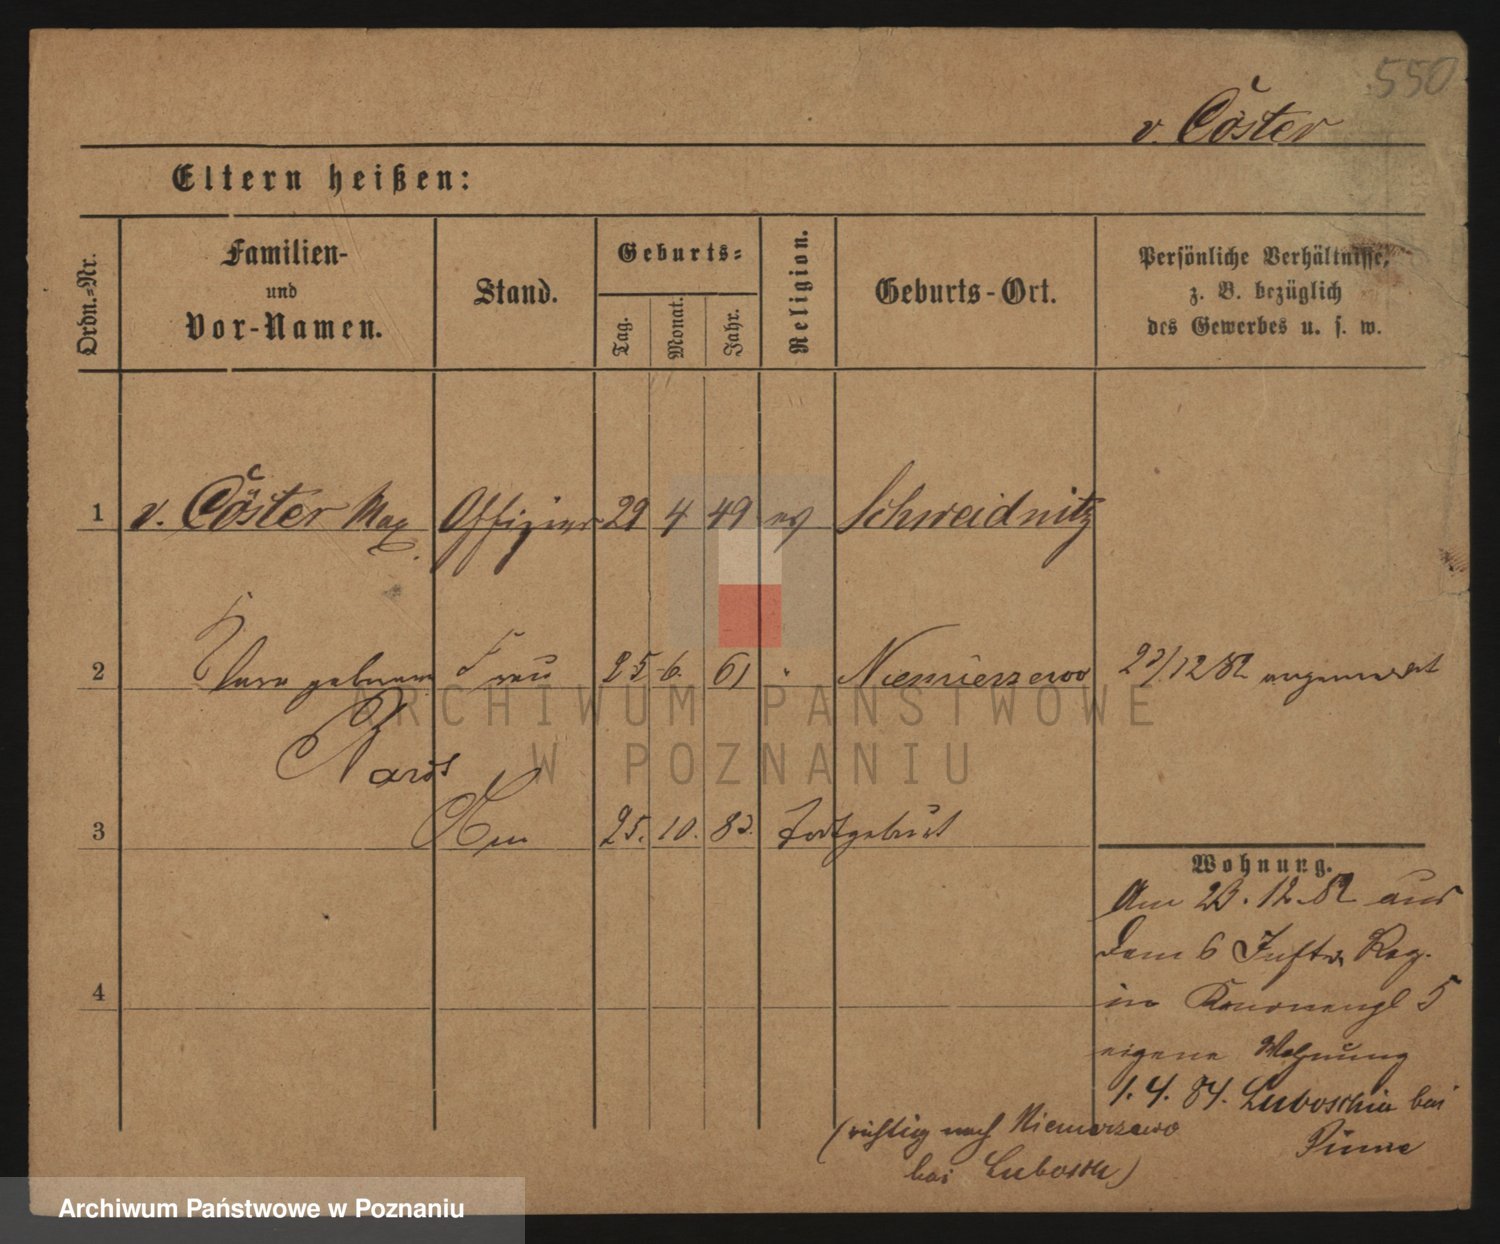 550
v. Cöster
Eltern heißen:
Ordn.-Nr.
Familien-
und
Vor-Namen.
Stand.
Geburts-
Tag.
Monat.
Jahr.
Religion.
Geburts-Ort.
Persönliche Verhältnisse,
z. B. bezüglich
des Gewerbes u. s. w.
1 v. Cöster Max Offizier 29 4 49 ev Schweidnitz
2 geborene Frau 25 6. 61 " Niemierzewo /12 82
3 25. 10. 83. Todtgeburt
4
Wohnung.
Am 23. 12. 82 aus
dem 6 Inft. Reg.
in 5
eigene Wohnung
1. 4. 84. Luboschin bei
Pinne
(richtig nach Niemierzewo
bei Lubosch)
ARCHIWUM PAŃSTWOWE
W POZNANIU
Archiwum Państwowe w Poznaniu